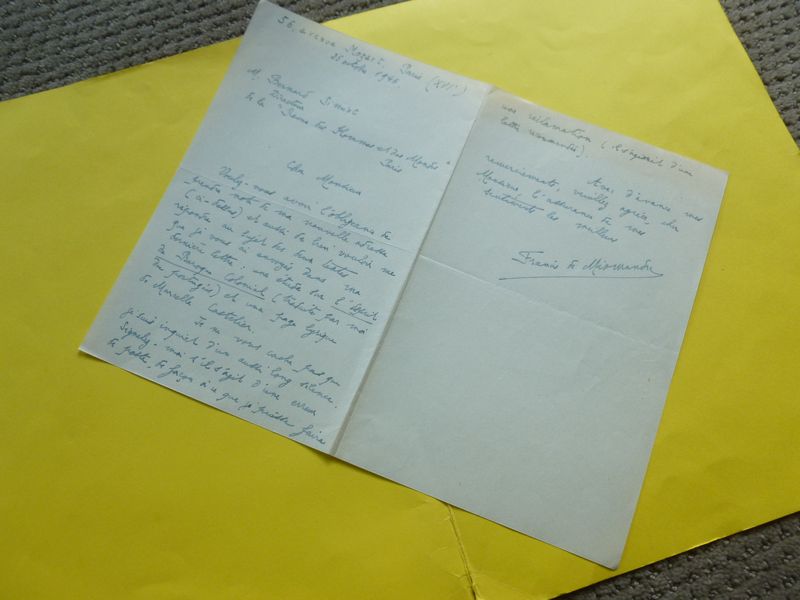 56, avenue Mozart. Paris (XVIe)
25 octobre 1946
M. Bernard
Directeur
de la "Revue des Hommes et des Mondes"
Paris
Cher Monsieur
Voulez-vous avoir l'obligeance de
prendre note de ma nouvelle adresse
(ci-dessus) et aussi de bien vouloir me
répondre au sujet des deux textes
que je vous ai envoyés dans ma
dernière lettre : une étude sur l'esprit
du Baroque Colonial (traduite par moi
du portugais) et une page lyrique
de Marcelle Castelier.
Je ne vous cache pas que
je suis inquiet d'un aussi long silence.
Signalez-moi s'il s'agit d'une erreur
de poste, de façon à ce que je puisse faire
une réclamation (il s'agissait d'une
lettre recommandée).
Avec d'avance mes
remerciements, veuillez agréer, cher
Monsieur, l'assurance de mes
sentiments les meilleurs
Francis de Miomandre